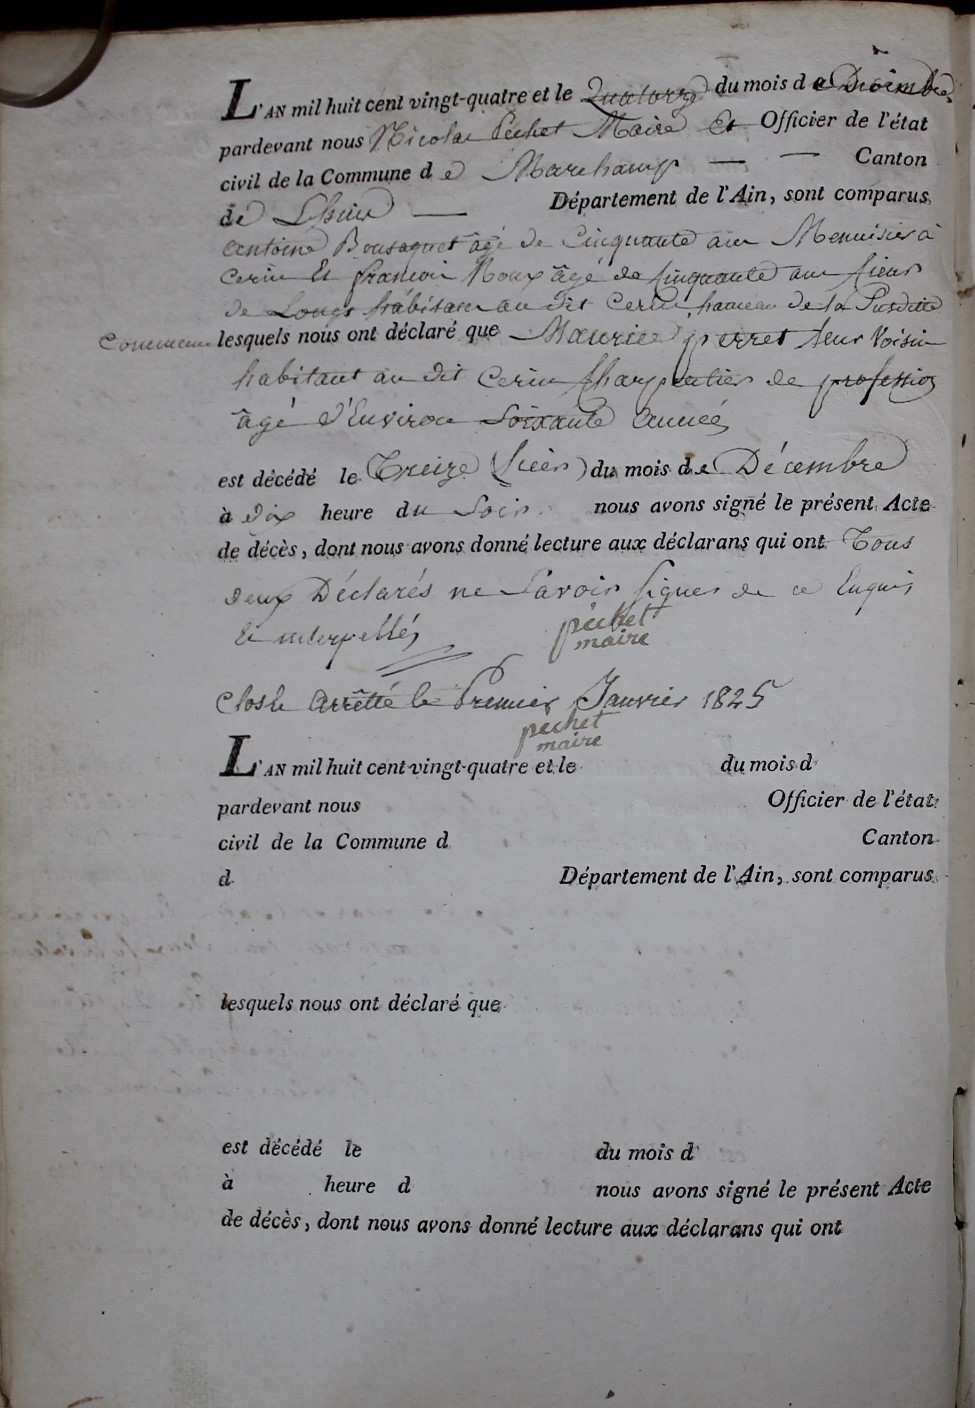 L'AN mil huit cent vingt-quatre et le Quatorze du mois d e Décembre
pardevant nous Nicolas Pechet Maire et Officier de l'état
civil de la Commune d e Marchamp — — Canton
de Lhuis — Département de l'Ain, sont comparus
antoine âgé de Cinquante ans Menuisier à
Cerin Et francois Roux âgé de Cinquante ans sieur
de Longs habitans au dit Cerin, hameau de la Susditte
Commune lesquels nous ont déclaré que Maurice perret leur Voisin
habitant au dit Cerin Charpentier de profession
âgé d'Environ Soixante années
est décédé le Treize (hier) du mois de Décembre
à dix heure du Soir nous avons signé le présent Acte
de décès, dont nous avons donné lecture aux déclarans qui ont Tous
deux Déclarés ne Savoir signer de ce Enquis
Et interpellés
péchet
maire
Clos et Arrêtté le Premier Janvier 1825
pechet
maire
L'AN mil huit cent vingt-quatre et le du mois d
pardevant nous Officier de l'état
civil de la Commune d Canton
d Département de l'Ain, sont comparus
lesquels nous ont déclaré que
est décédé le du mois d
à heure d nous avons signé le présent Acte
de décès, dont nous avons donné lecture aux déclarans qui ont